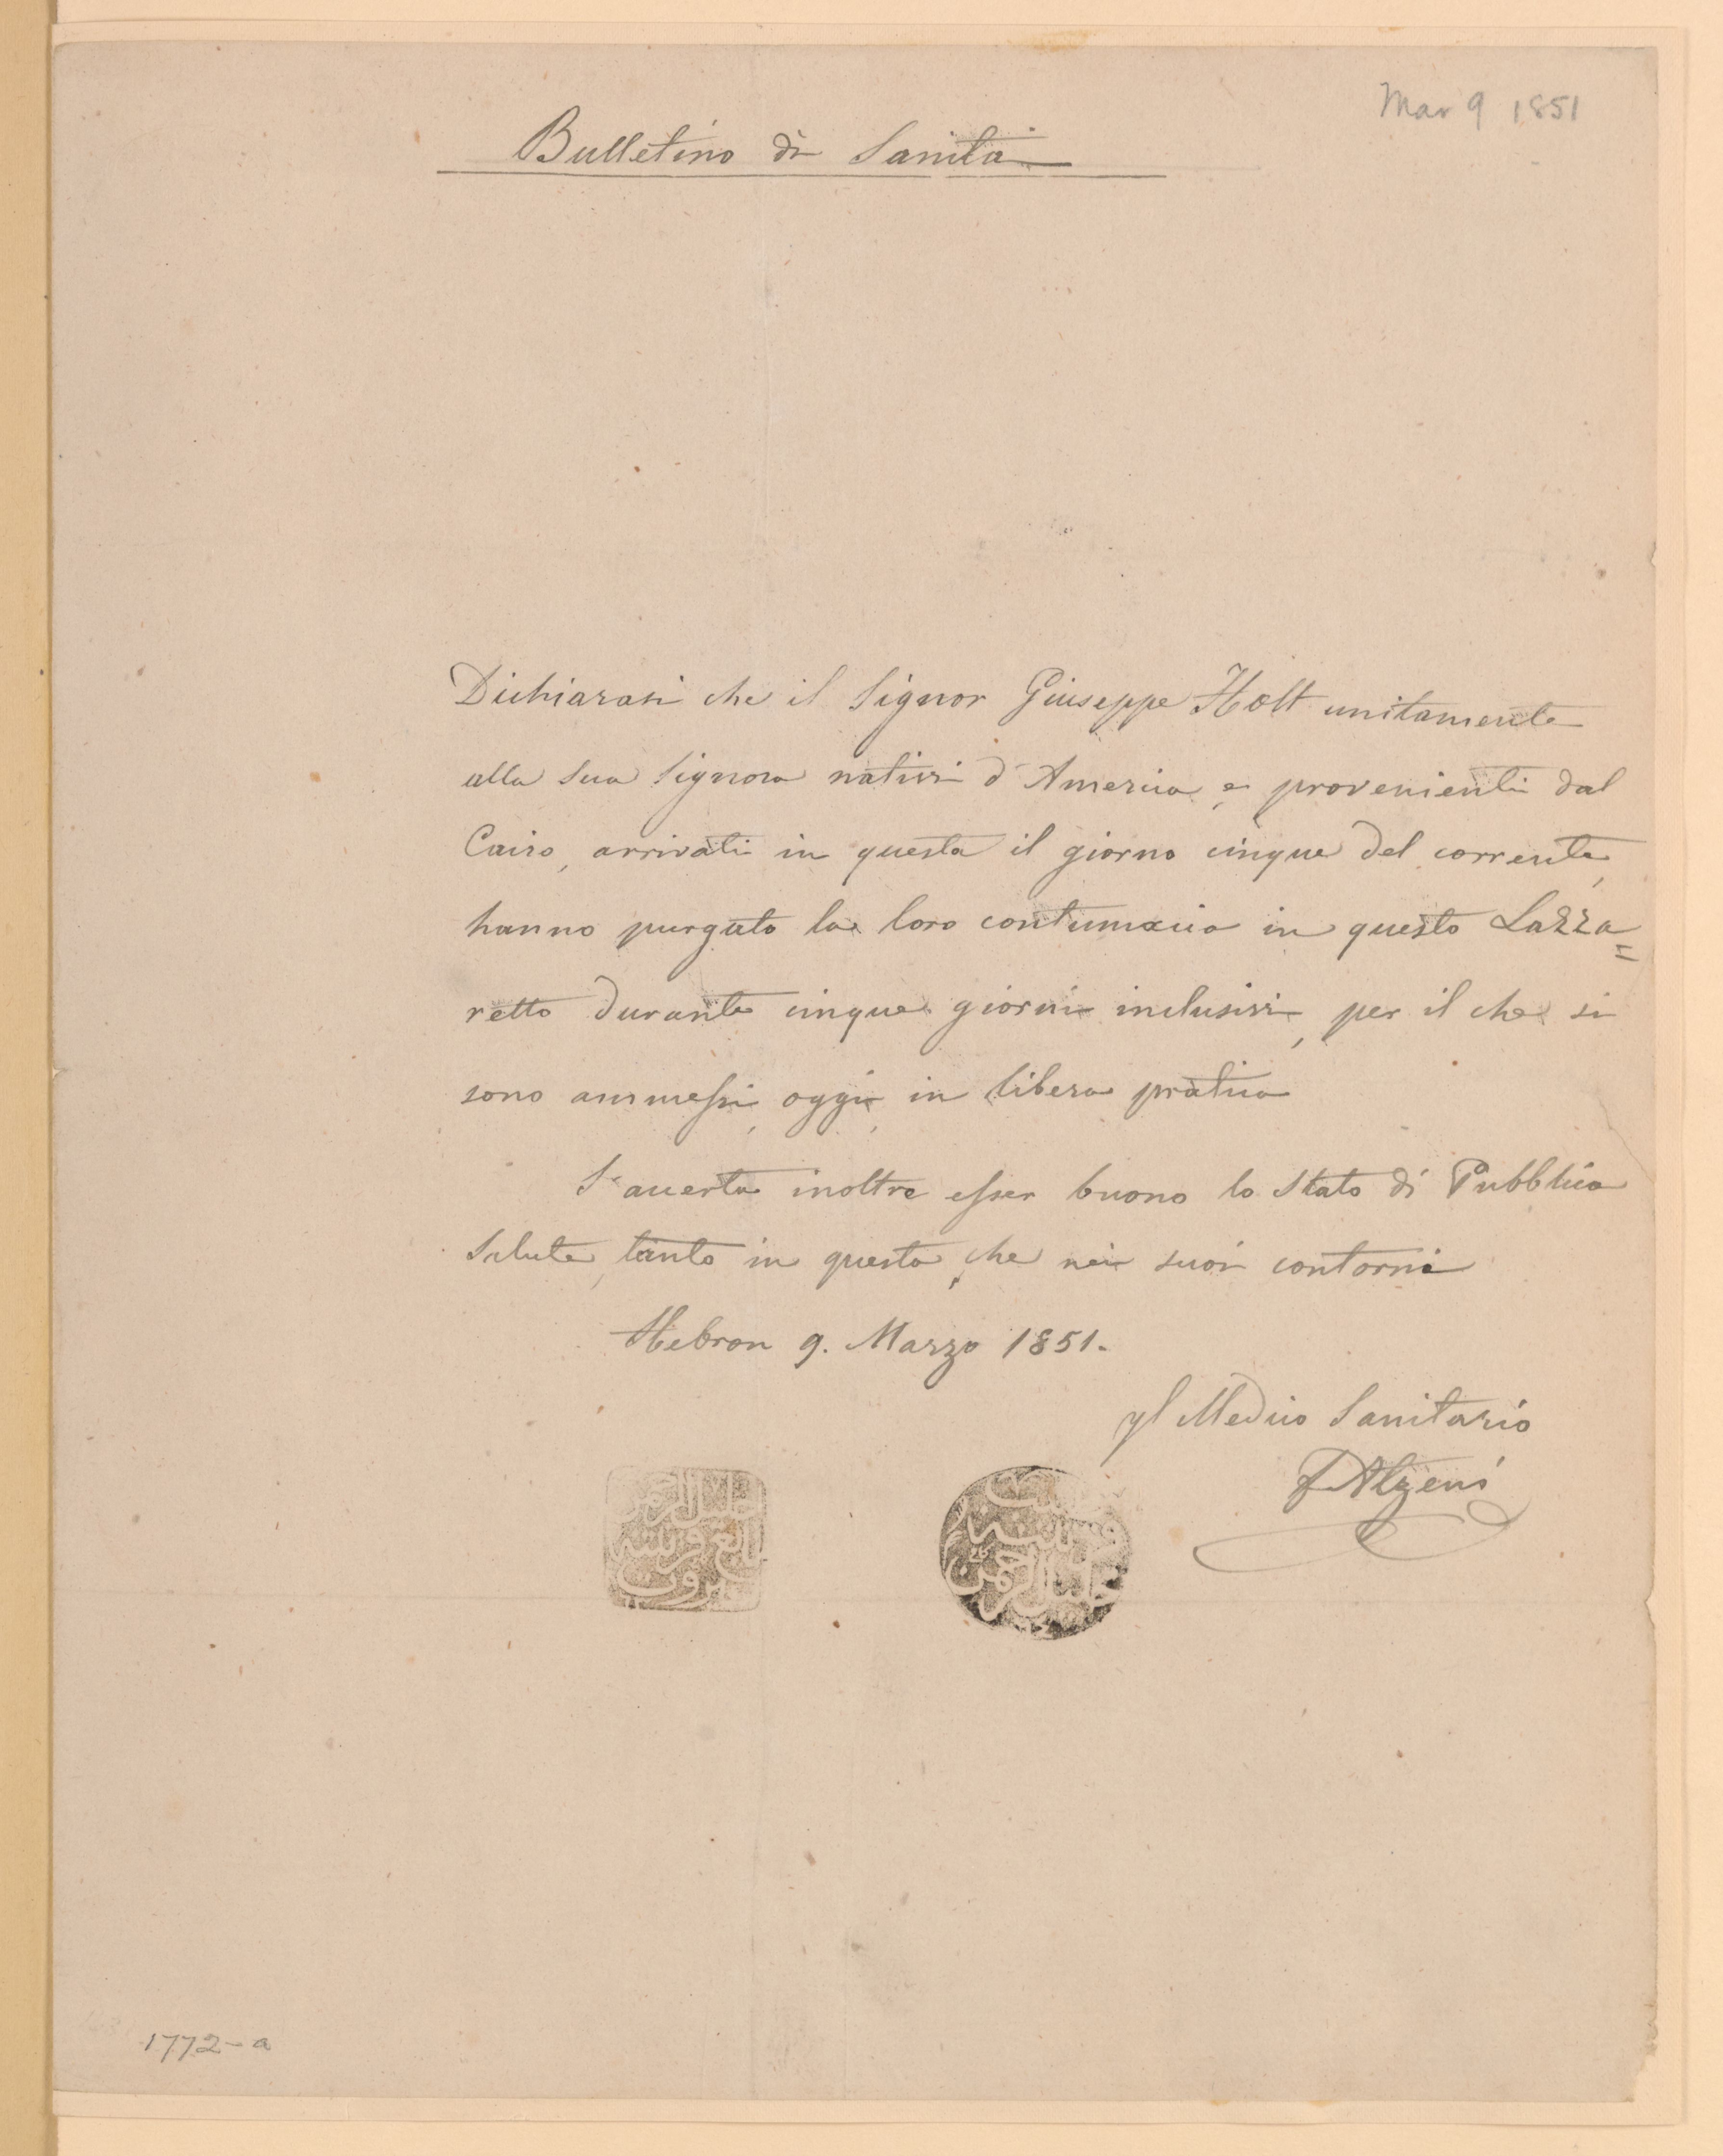 Mar 9 1851
Bulletino di Sanità
Dichiarasi che il Signor Giuseppe Holt unitamente
alla sua Signora nativi d'America, e provenienti dal
Cairo, arrivati in questa il giorno cinque del corrente,
hanno purgato la loro contumacia in questo Lazza=
retto durante cinque giorni inclusivi, per il che si
sono ammessi, oggi, in libera pratica
S'averta inoltre esser buono lo Stato di Pubblica
Salute, tanto in questa, che nei suoi contorni
Hebron 9. Marzo 1851.
Il Medico Sanitario
1772-a